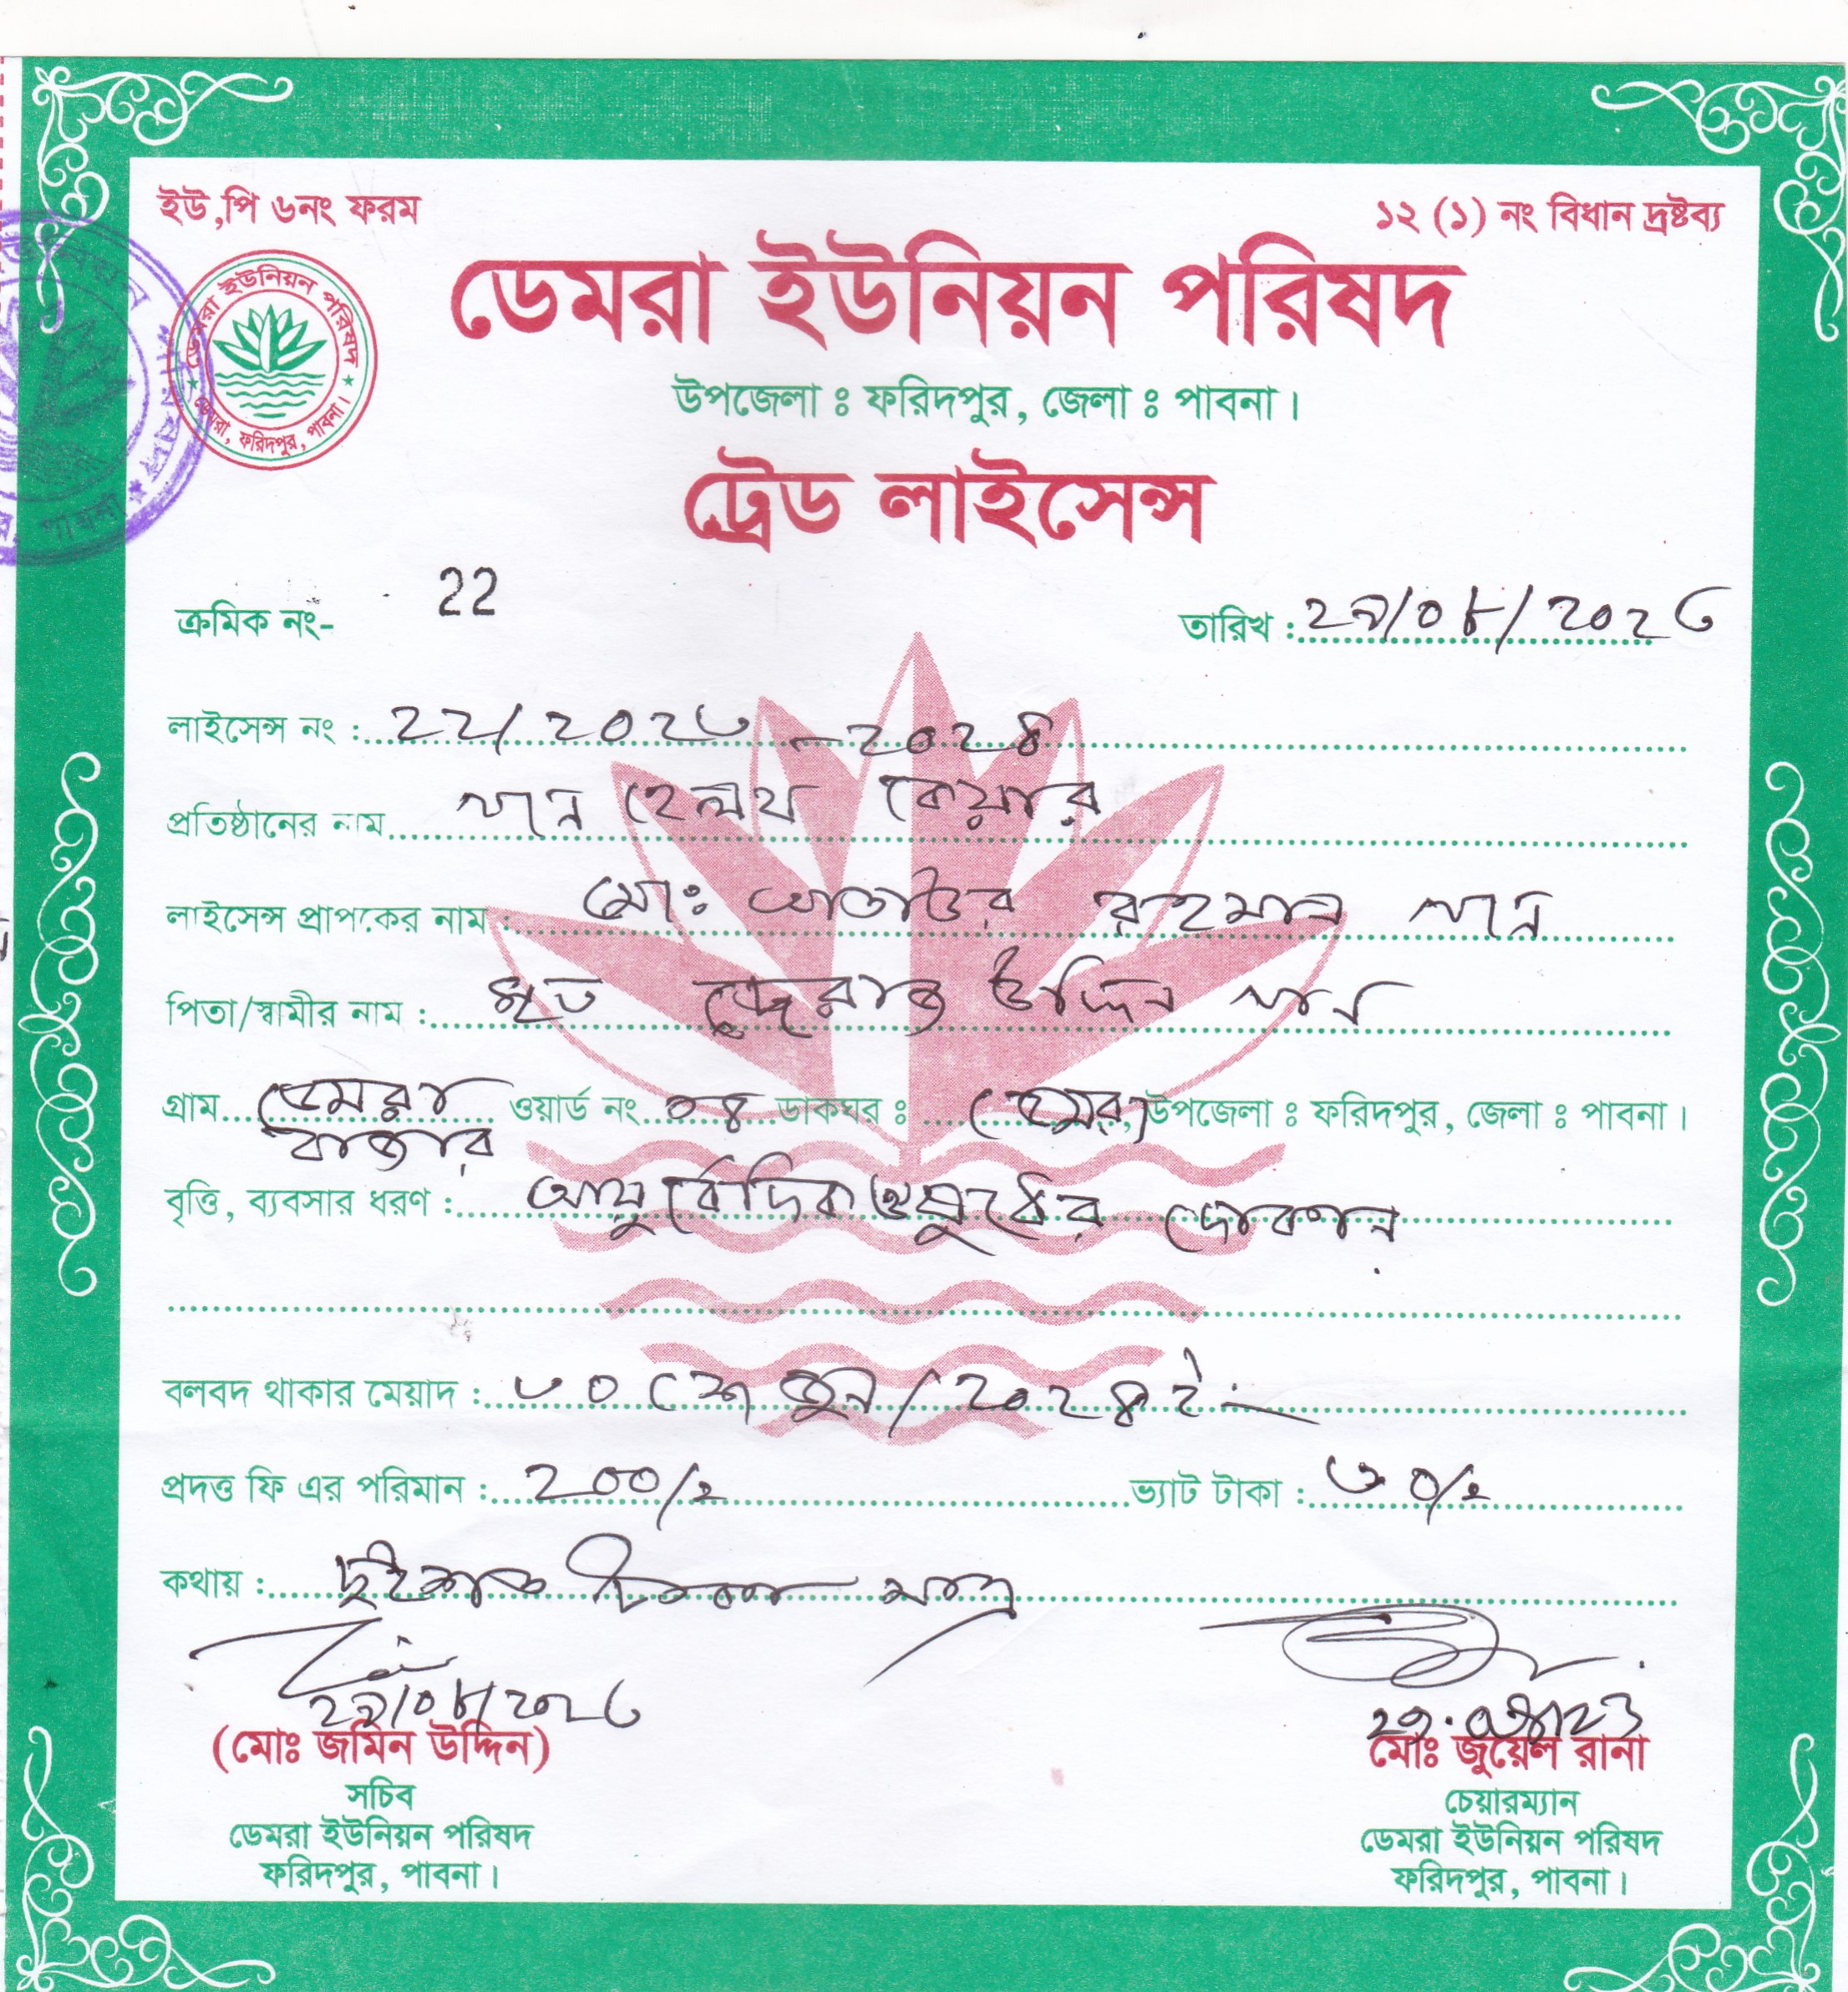 ইউ,পি ৬নং ফরম
১২ (১) নং বিধান দ্রষ্টব্য
ডেমরা ইউনিয়ন পরিষদ
ডেমরা, ফরিদপুর, পাবনা।
ডেমরা ইউনিয়ন পরিষদ
উপজেলা ঃ ফরিদপুর, জেলা ঃ পাবনা।
ট্রেড লাইসেন্স
ক্রমিক নং- 22
তারিখ : ২৯/০৮/২০২৩
লাইসেন্স নং : ২২/২০২৩ - ২০২৪
প্রতিষ্ঠানের নাম হেল্থ কেয়ার
লাইসেন্স প্রাপকের নাম : মোঃ আতাউর রহমান
পিতা/স্বামীর নাম : মৃত উদ্দিন
গ্রাম ডেমরা ওয়ার্ড নং ০৪ ডাকঘর ঃ ডেমরা, উপজেলা ঃ ফরিদপুর, জেলা ঃ পাবনা।
বাজার
বৃত্তি, ব্যবসার ধরণ : আয়ুর্বেদিক ঔষুধের দোকান
বলবদ থাকার মেয়াদ : ৩০ শে জুন/২০২৪ ইং
প্রদত্ত ফি এর পরিমান : ২০০/= ভ্যাট টাকা : ৩০/=
কথায় : দুইশত টাকা মাত্র
২৯/০৮/২০২৩
(মোঃ জমিন উদ্দিন)
সচিব
ডেমরা ইউনিয়ন পরিষদ
ফরিদপুর, পাবনা।
মোঃ জুয়েল রানা
চেয়ারম্যান
ডেমরা ইউনিয়ন পরিষদ
ফরিদপুর, পাবনা।